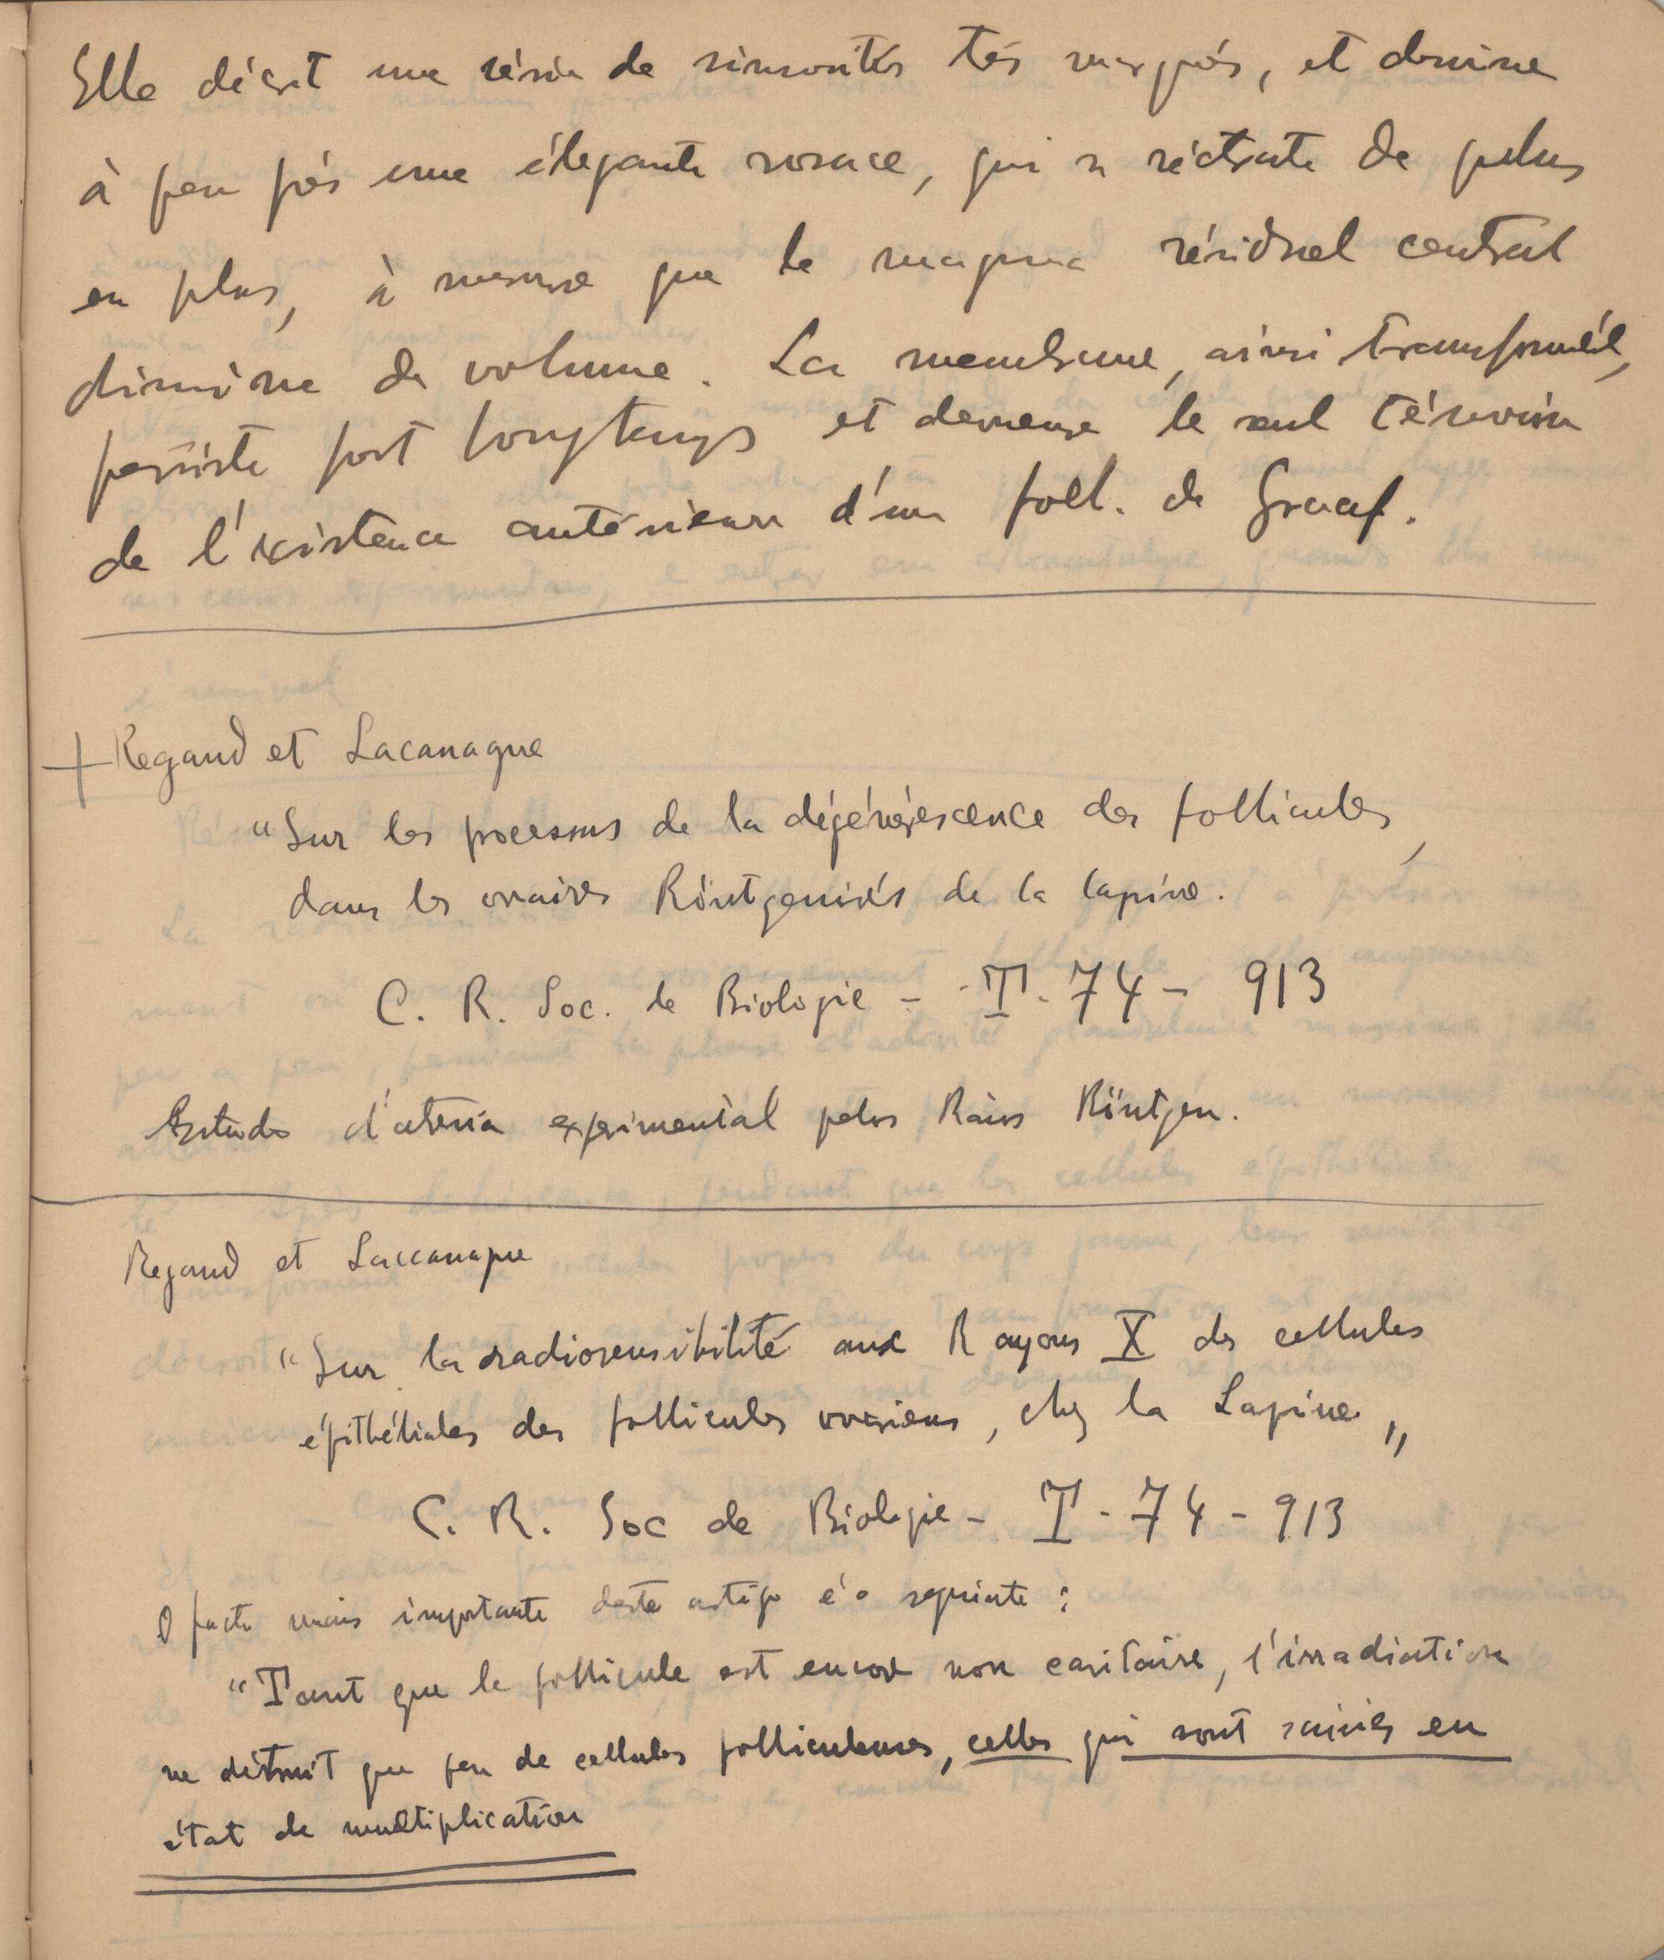 Elle décrit une série de sinuosités très marqués, et dessine
à peu près une élégante rosace, qui se rétracte de plus
en plus, à mesure que le magma résiduel central
diminue de volume. La membrane, ainsi transformée,
persiste fort longtemps et demeure le seul témoin
de l'existence antérieure d'un foll. de Graaf.
+ Regaud et Lacanague
"Sur les processus de la dégénérescence des follicules,
dans les ovaires Röntgenisés de la lapine.
C. R. Soc. de Biologie - T. 74 - 913
Estudo d'atresia experimental pelos Raios Röntgen.
Regaud et Laccanague
"Sur la radiosensibilité aux Rayons X des cellules
épithéliales des follicules ovariens, chez la Lapine"
C. R. Soc de Biologie - T - 74 - 913
O facto mais importante deste artigo é o seguinte:
"Tant que le follicule est encore non cavitaire, l'irradiation
ne détruit que peu de cellules folliculeuses, celles qui sont saisies en
état de multiplication